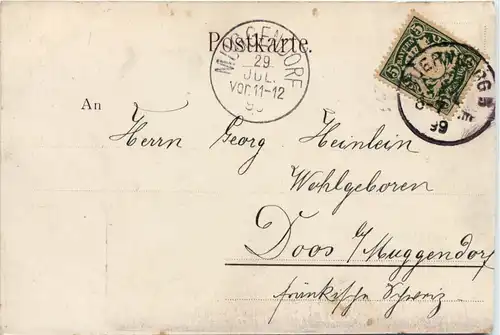 Postkarte.
MUGGENDORF
29
JUL.
VOR.11-12
99
5
5
BERG 5
99
An
Herrn Georg Heinlein
Wohlgeboren
Doos a/Muggendorf
fränkische Schweiz